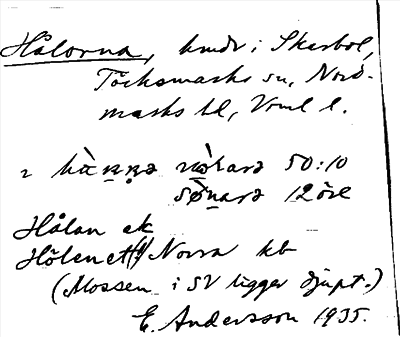 Hålorna, hmdr i Skarbol,
Töcksmarks sn, Nord-
marks hd, Vrml l.
50:10
12 öre
Hålan ek
Hölen ett Norra kb
(Mossen i SV ligger djupt.)
E. Andersson 1935.